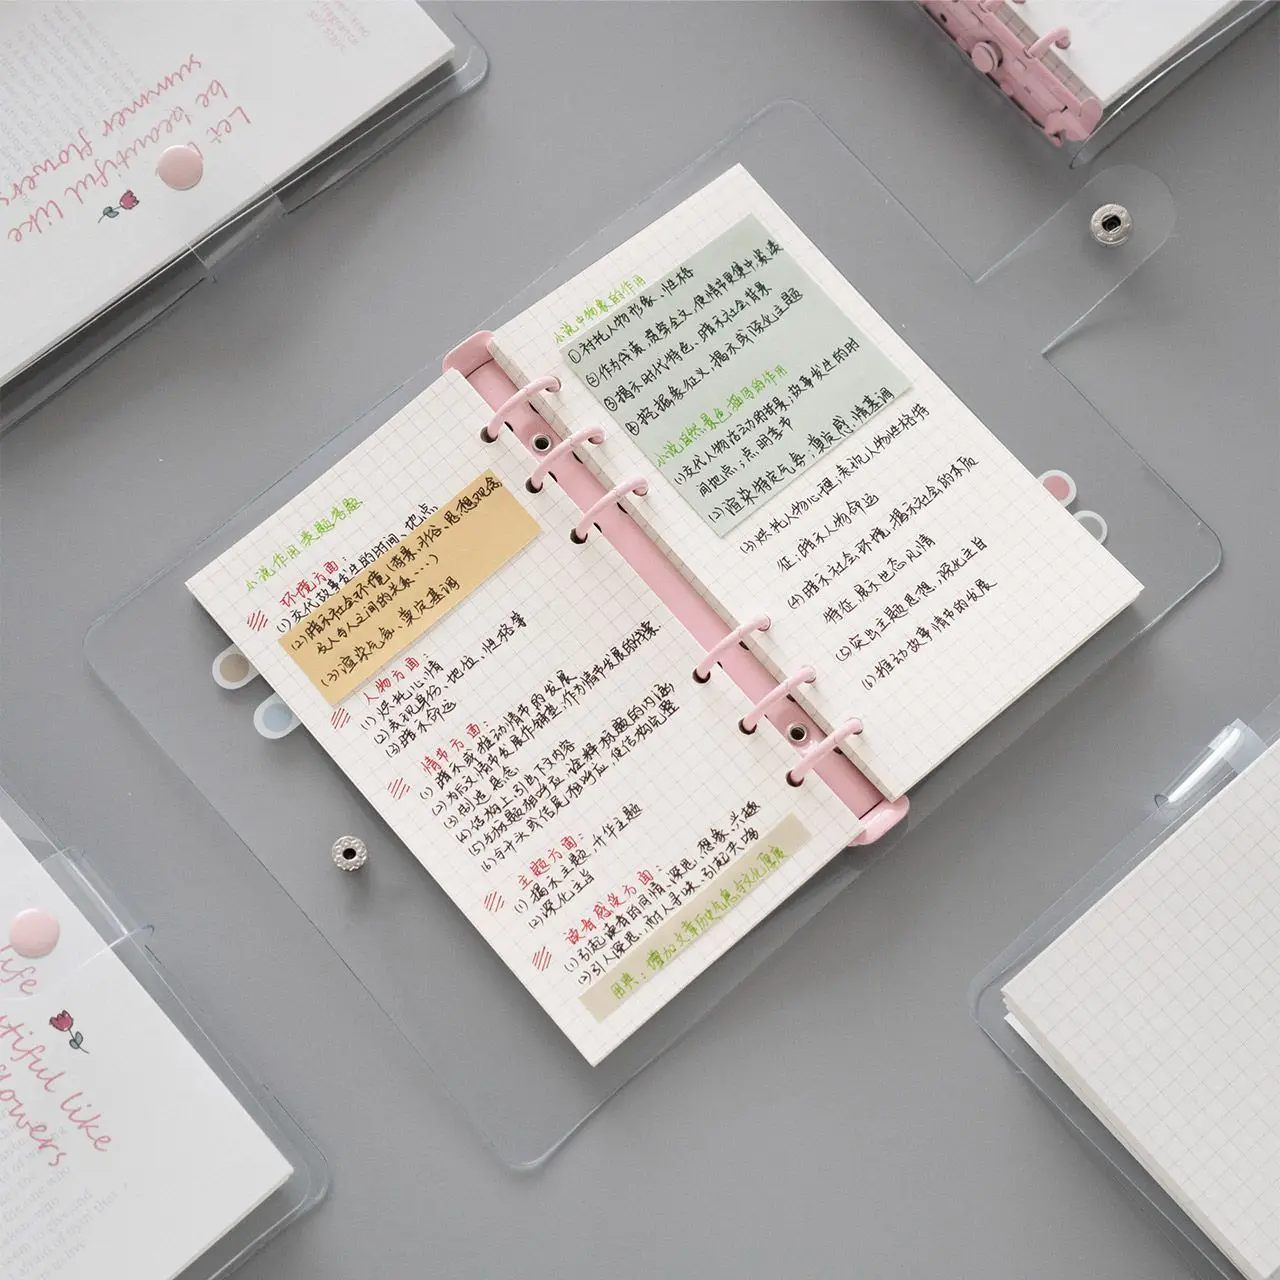 Let
be beautiful like
summer flowers
小说作用类题答题
环境方面：
(1)交代故事发生的时间、地点
(2)暗示社会环境(背景、习俗、思想观念
及人与人之间的关系…)
(3)渲染气氛、奠定基调
人物方面：
(1)烘托心情
(2)表现身份、地位、性格等
(3)暗示命运
情节方面：
(1)暗示或推动情节的发展
(2)为后文情节发展作铺垫，作为情节发展的线索
(3)制造悬念
(4)结构上，引出下文内容
(5)与标题相呼应，诠释标题的内涵
(6)与开头或结尾相呼应，使结构完整
主题方面：
(1)揭示主题，升华主题
(2)深化主旨
读者感受方面：
(1)引起读者的同情、深思、想象、兴趣
(2)引人深思，耐人寻味，引起共鸣
用典：增加文章历史气息与文化厚度
小说中物象的作用
①衬托人物形象、性格
②作为线索，贯穿全文，使情节更集中紧凑
③揭示时代特色、暗示社会背景
④挖掘象征义，揭示或深化主题
小说自然景色描写的作用
(1)交代人物活动的背景，故事发生的时
间地点；点明季节
(2)渲染特定气氛；奠定感情基调
(3)烘托人物心理，表现人物性格特
征；暗示人物命运
(4)暗示社会环境，揭示社会的本质
特征，展示世态风情
(5)突出主题思想，深化主旨
(6)推动故事情节的发展
life
like